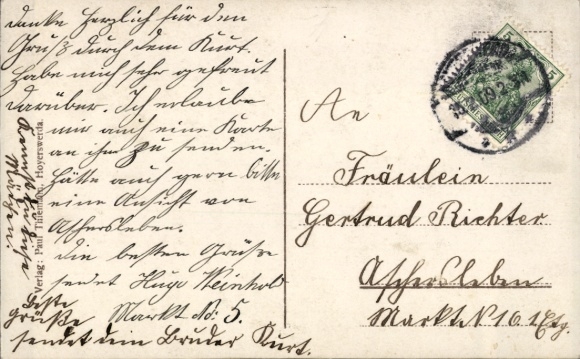 danke herzlich für den
Gruß durch dem Kurt.
Habe mich sehr gefreut
darüber. Ich erlaube
mir auch eine Karte
an ihm zu senden.
Hätte auch gern bitte
eine Ansicht von
Aschersleben.
Die besten Grüße
sendet Hugo Weinhold
Markt № 5.
Beste
Grüße
sendet dein Bruder Kurt.
Verlag: Paul Hoyerswerda.
An
Fräulein
Gertrud Richter
Aschersleben
Markt N 16 I Etg.
5 5